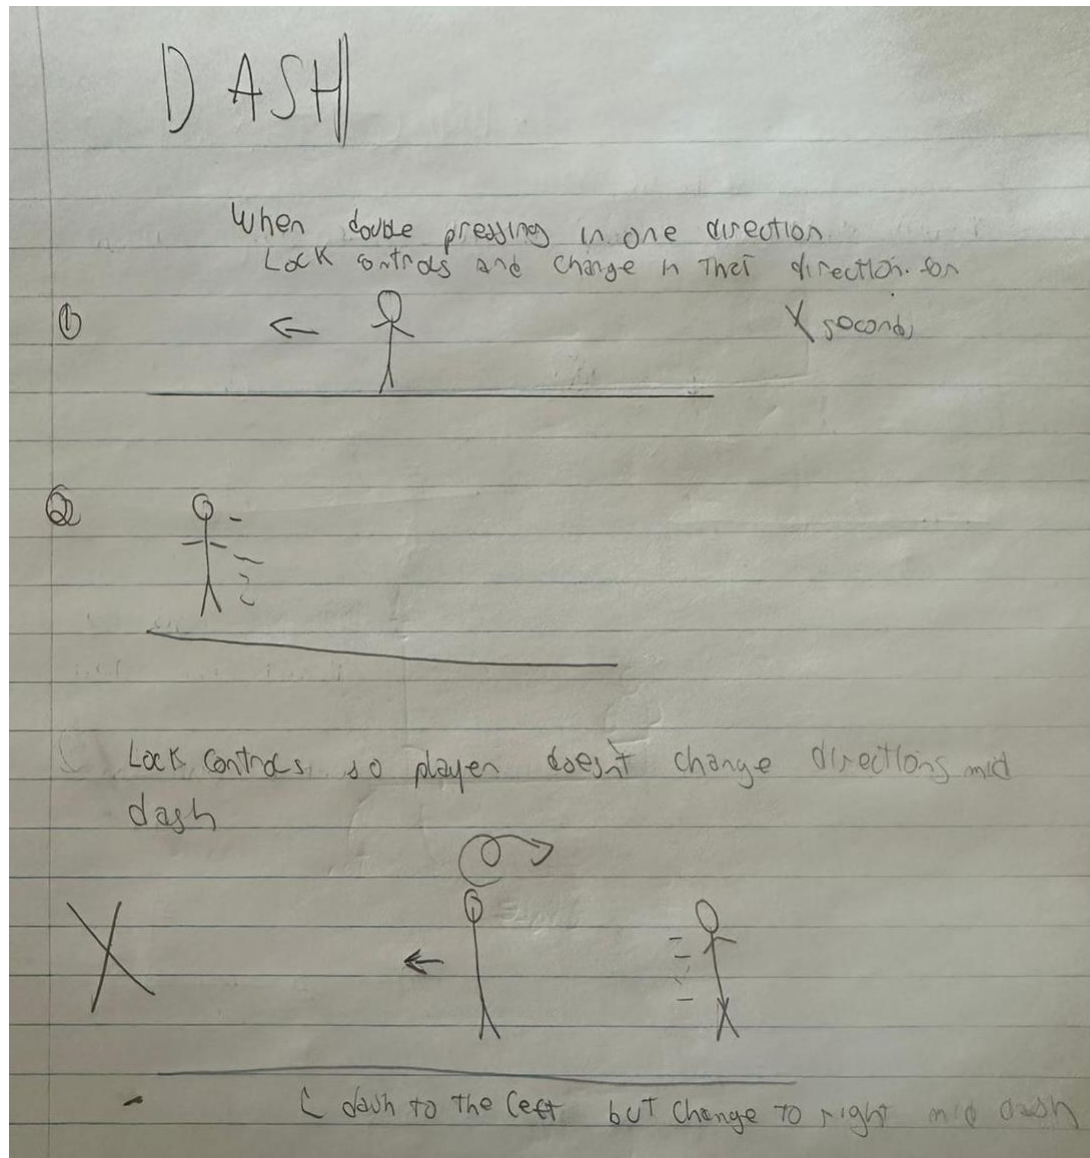 DASH
When double pressing in one direction
Lock controls and change in that direction. for
① X seconds
②
Lock controls so player doesn't change directions mid
dash
X
dash to the left but change to right mid dash